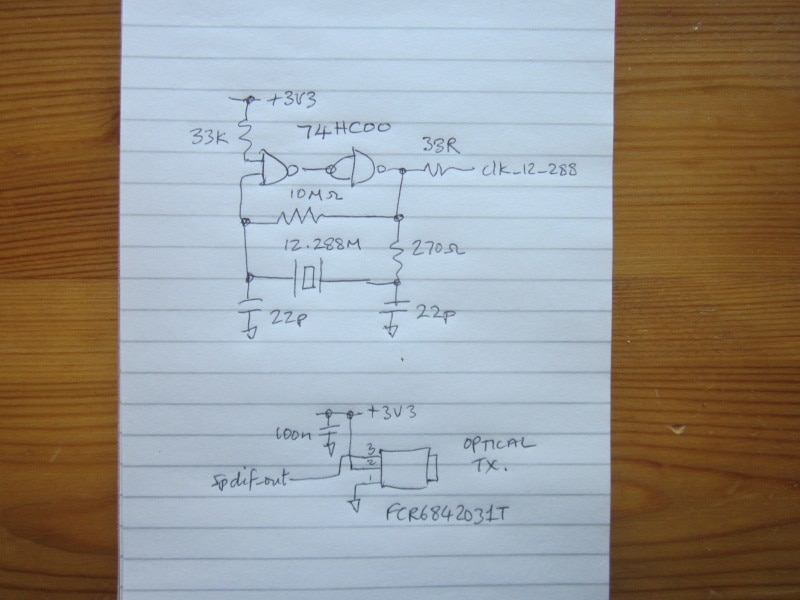 +3V3
33K
74HC00
33R
clk_12_288
10MΩ
12.288M
270Ω
22p
22p
+3V3
100n
3
2
1
spdif-out
OPTICAL
TX.
FCR6842031T